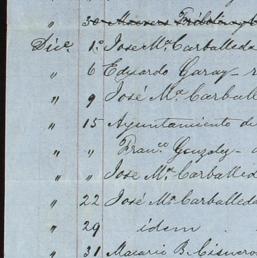 " 30
Dice. 1º José Mª Carballeda
" 6 Eduardo Garay
" 9 José Mª Carball
" 15 Ayuntamiento de
" " Franco. Gonzalez
" " José Mª Carballed
" 22 José Mª Carballeda
" 29 idem
" 31 Macario B. Cisnero